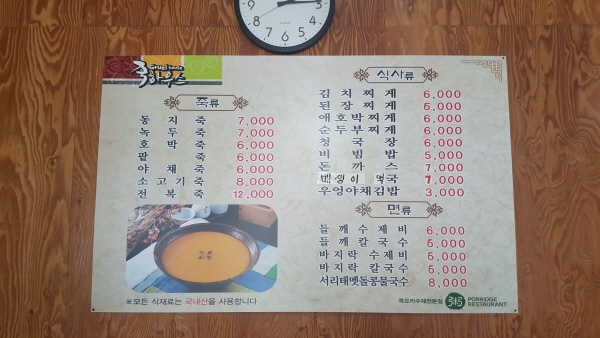 Gruel house
죽하우스
죽류
동지죽 7,000
녹두죽 7,000
호박죽 6,000
팥죽 6,000
야채죽 6,000
소고기죽 8,000
전복죽 12,000
※모든 식재료는 국내산을 사용합니다
식사류
김치찌게 6,000
된장찌게 5,000
애호박찌게 6,000
순두부찌게 6,000
청국장 6,000
비빔밥 5,000
돈까스 7,000
떡국 7,000
우엉야채김밥 3,000
면류
들깨수제비 6,000
들깨칼국수 5,000
바지락수제비 5,000
바지락칼국수 5,000
서리태맷돌콩물국수 8,000
죽요리수제전문점
PORRIDGE
RESTAURANT